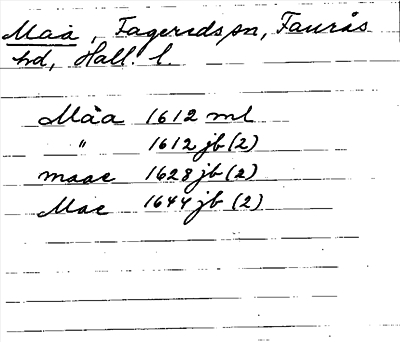 Maå, Fagereds sn, Faurås
hd, Hall. l.
Måa 1612 ml
" 1612 jb (2)
maae 1628 jb (2)
Mae 1644 jb (2)